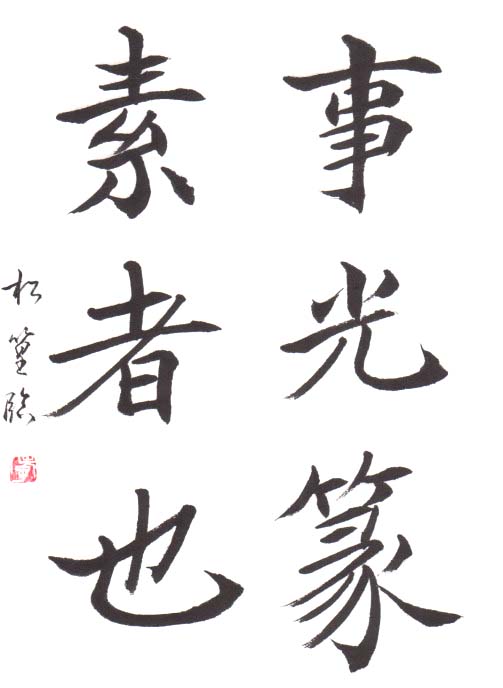 事光篆
素者也
松篁臨